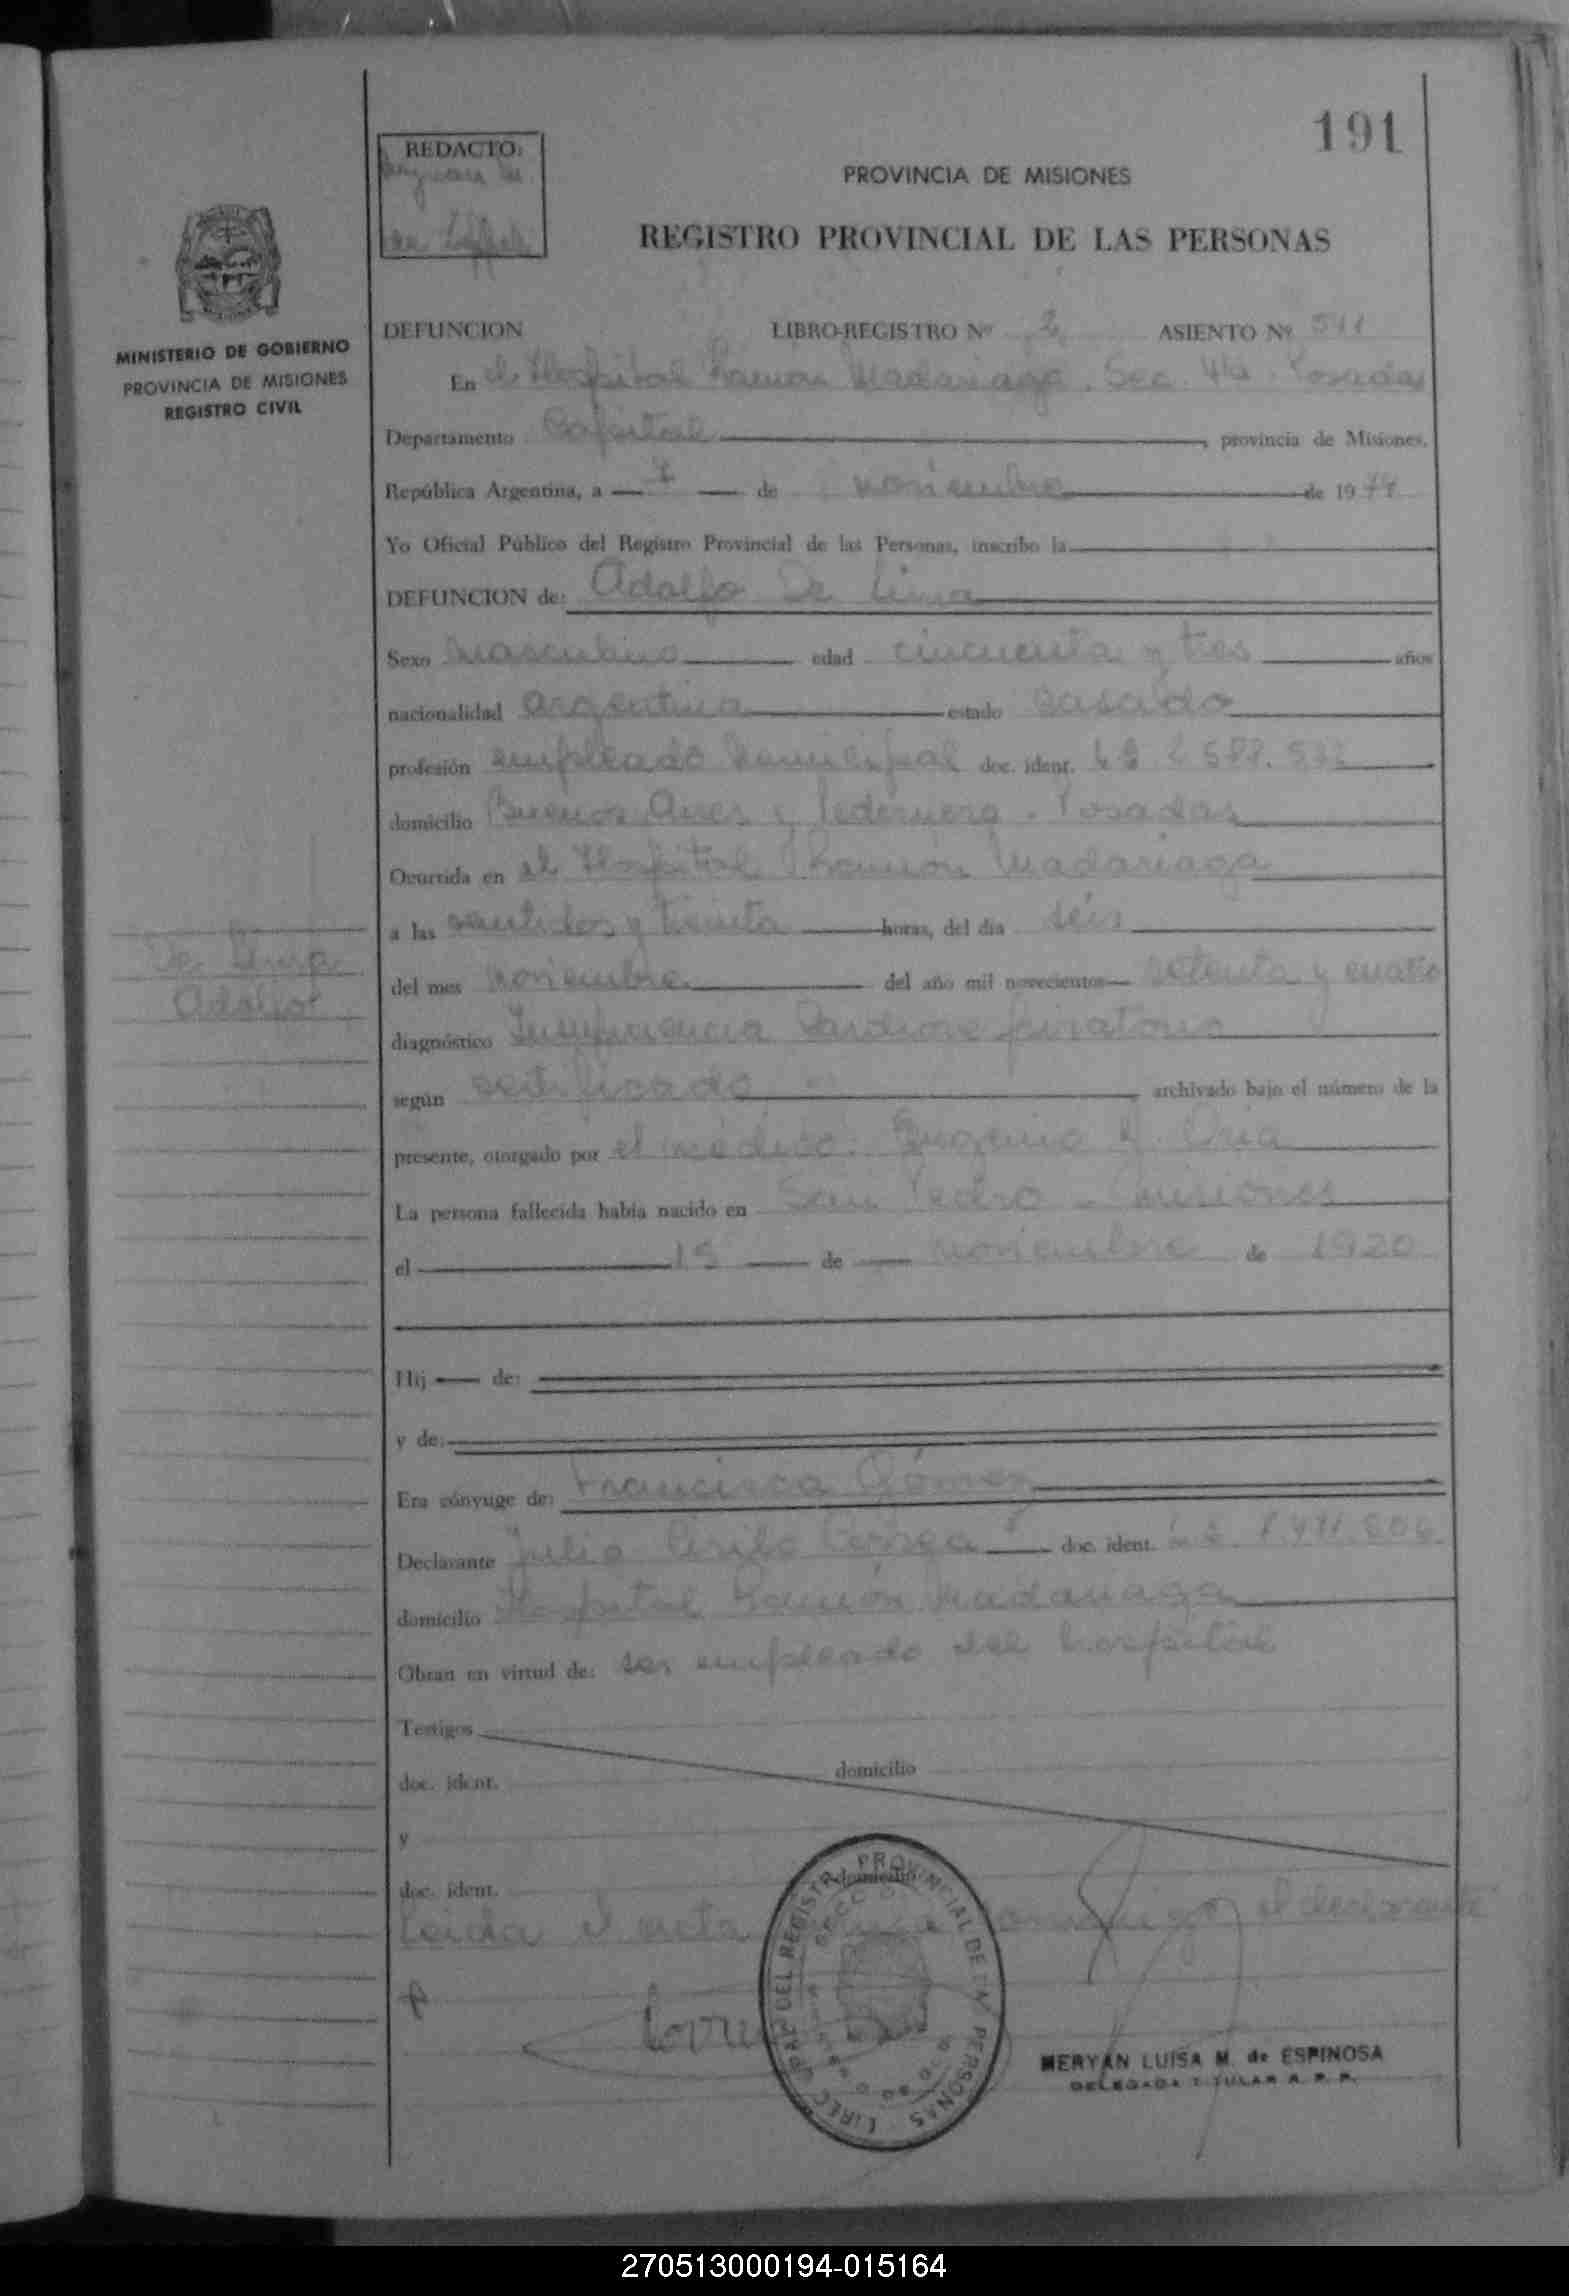 191
REDACTO:
PROVINCIA DE MISIONES
REGISTRO PROVINCIAL DE LAS PERSONAS
MINISTERIO DE GOBIERNO
PROVINCIA DE MISIONES
REGISTRO CIVIL
DEFUNCION LIBRO-REGISTRO Nº 2 ASIENTO Nº 511
En el Hospital Ramón Madariaga. Sec. 4ta. Posadas
Departamento Capital, provincia de Misiones,
República Argentina, a 7 de noviembre de 1974
Yo Oficial Público del Registro Provincial de las Personas, inscribo la
DEFUNCION de: Adolfo De Lima
Sexo masculino edad cincuenta y tres años
nacionalidad argentina estado casado
profesión empleado municipal doc. ident.
domicilio Buenos Aires y Pedernera. Posadas
Ocurrida en el Hospital Ramón Madariaga
a las veintidos y treinta horas, del día seis
del mes noviembre del año mil novecientos setenta y cuatro
De Lima
Adolfo
diagnóstico Insuficiencia Cardiorespiratoria
según certificado archivado bajo el número de la
presente, otorgado por el médico: Eugenio
La persona fallecida había nacido en San Pedro - Misiones
el 15 de noviembre de 1920
Hij de:
y de:
Era cónyuge de: Francisca Gómez
Declarante Julio Cirilo Correa doc. ident.
domicilio Hospital Ramón Madariaga
Obran en virtud de: ser empleado del hospital
Testigos
doc. ident. domicilio
y
doc. ident. domicilio
Leida el acta el declarante
MERYAN LUISA M. de ESPINOSA
DELEGADA TITULAR R. P. P.
270513000194-015164